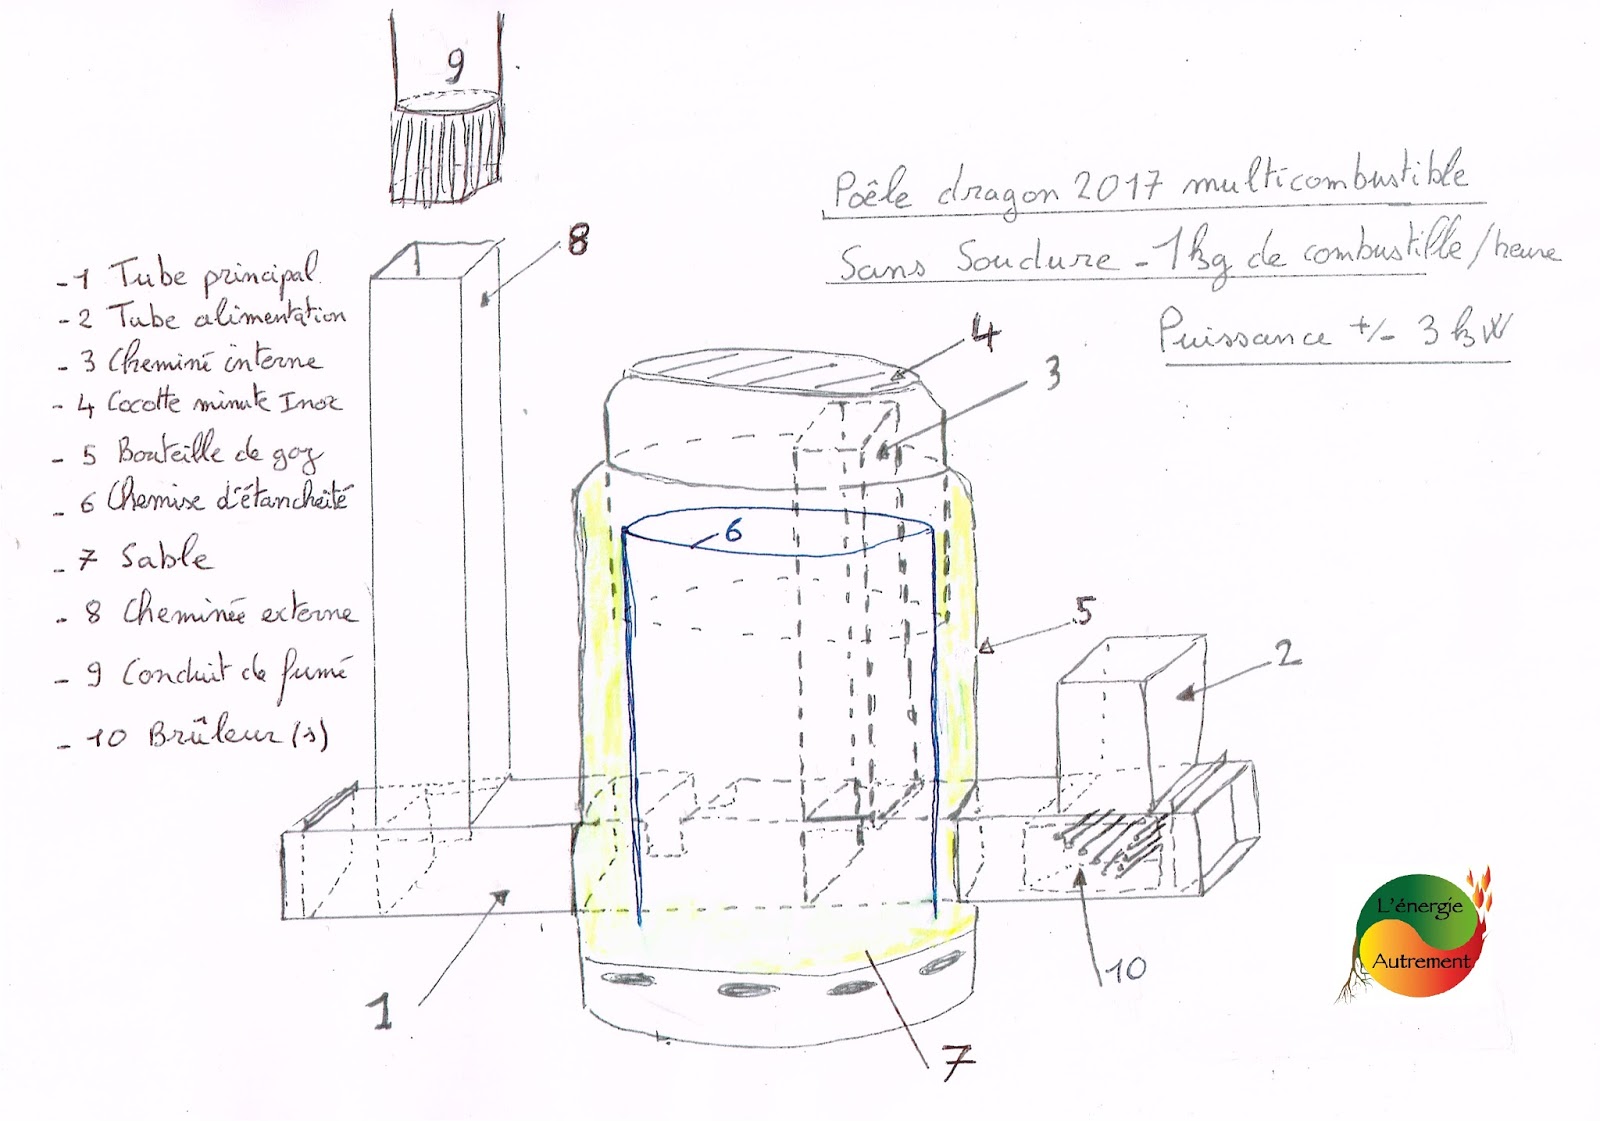 9
Poêle dragon 2017 multicombustible
Sans Soudure - 1kg de combustille/heure
Puissance +/- 3 kW
8
- 1 Tube principal
- 2 Tube alimentation
- 3 Cheminé interne
- 4 Cocotte minute Inox
- 5 Bouteille de gaz
- 6 Chemise d'étancheité
- 7 Sable
- 8 Cheminée externe
- 9 Conduit de fumé
- 10 Brûleur(s)
4
3
6
5
2
1
10
7
L'énergie
Autrement